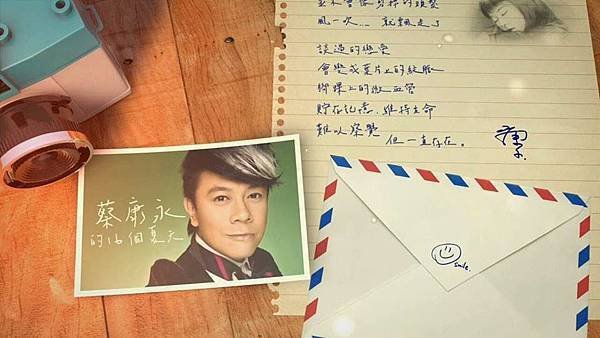 風一吹……就飄走了
談過的戀愛
會變成葉片上的紋脈
蝴蝶上的微血管
貯存記憶.維持生命
難以察覺
但一直存在。
蔡康永
的16個夏天
smile.